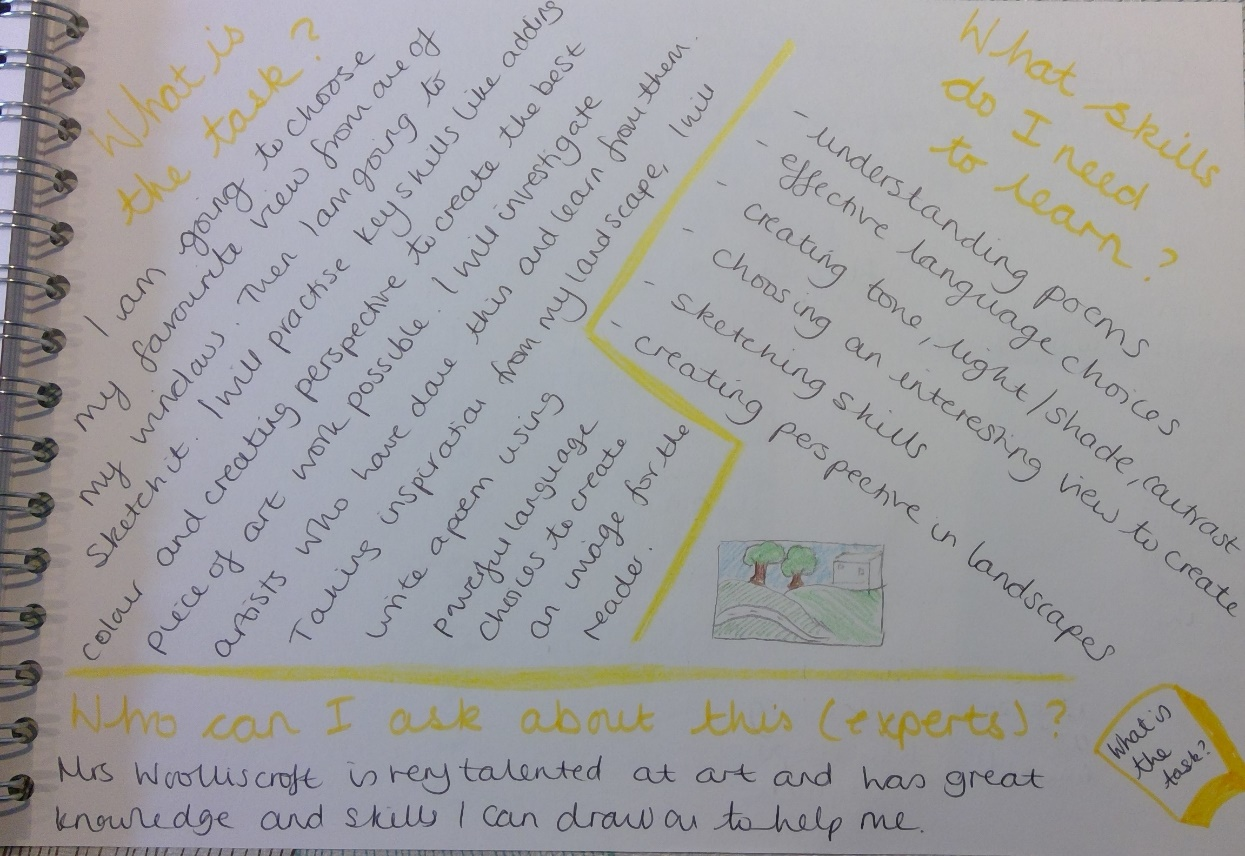 What is
the task?
I am going to choose
my favourite view from one of
my windows. Then I am going to
sketch it. I will practise key skills like adding
colour and creating perspective to create the best
piece of art work possible. I will investigate
artists who have done this and learn from them.
Taking inspiration from my landscape, I will
write a poem using
powerful language
choices to create
an image for the
reader.
What skills
do I need
to learn?
- understanding poems
- effective language choices
- creating tone, light/shade, contrast
- choosing an interesting view to create
- sketching skills
- creating perspective in landscapes
Who can I ask about this (experts)?
Mrs Woolliscroft is very talented at art and has great
knowledge and skills I can draw on to help me.
What is
the
task?